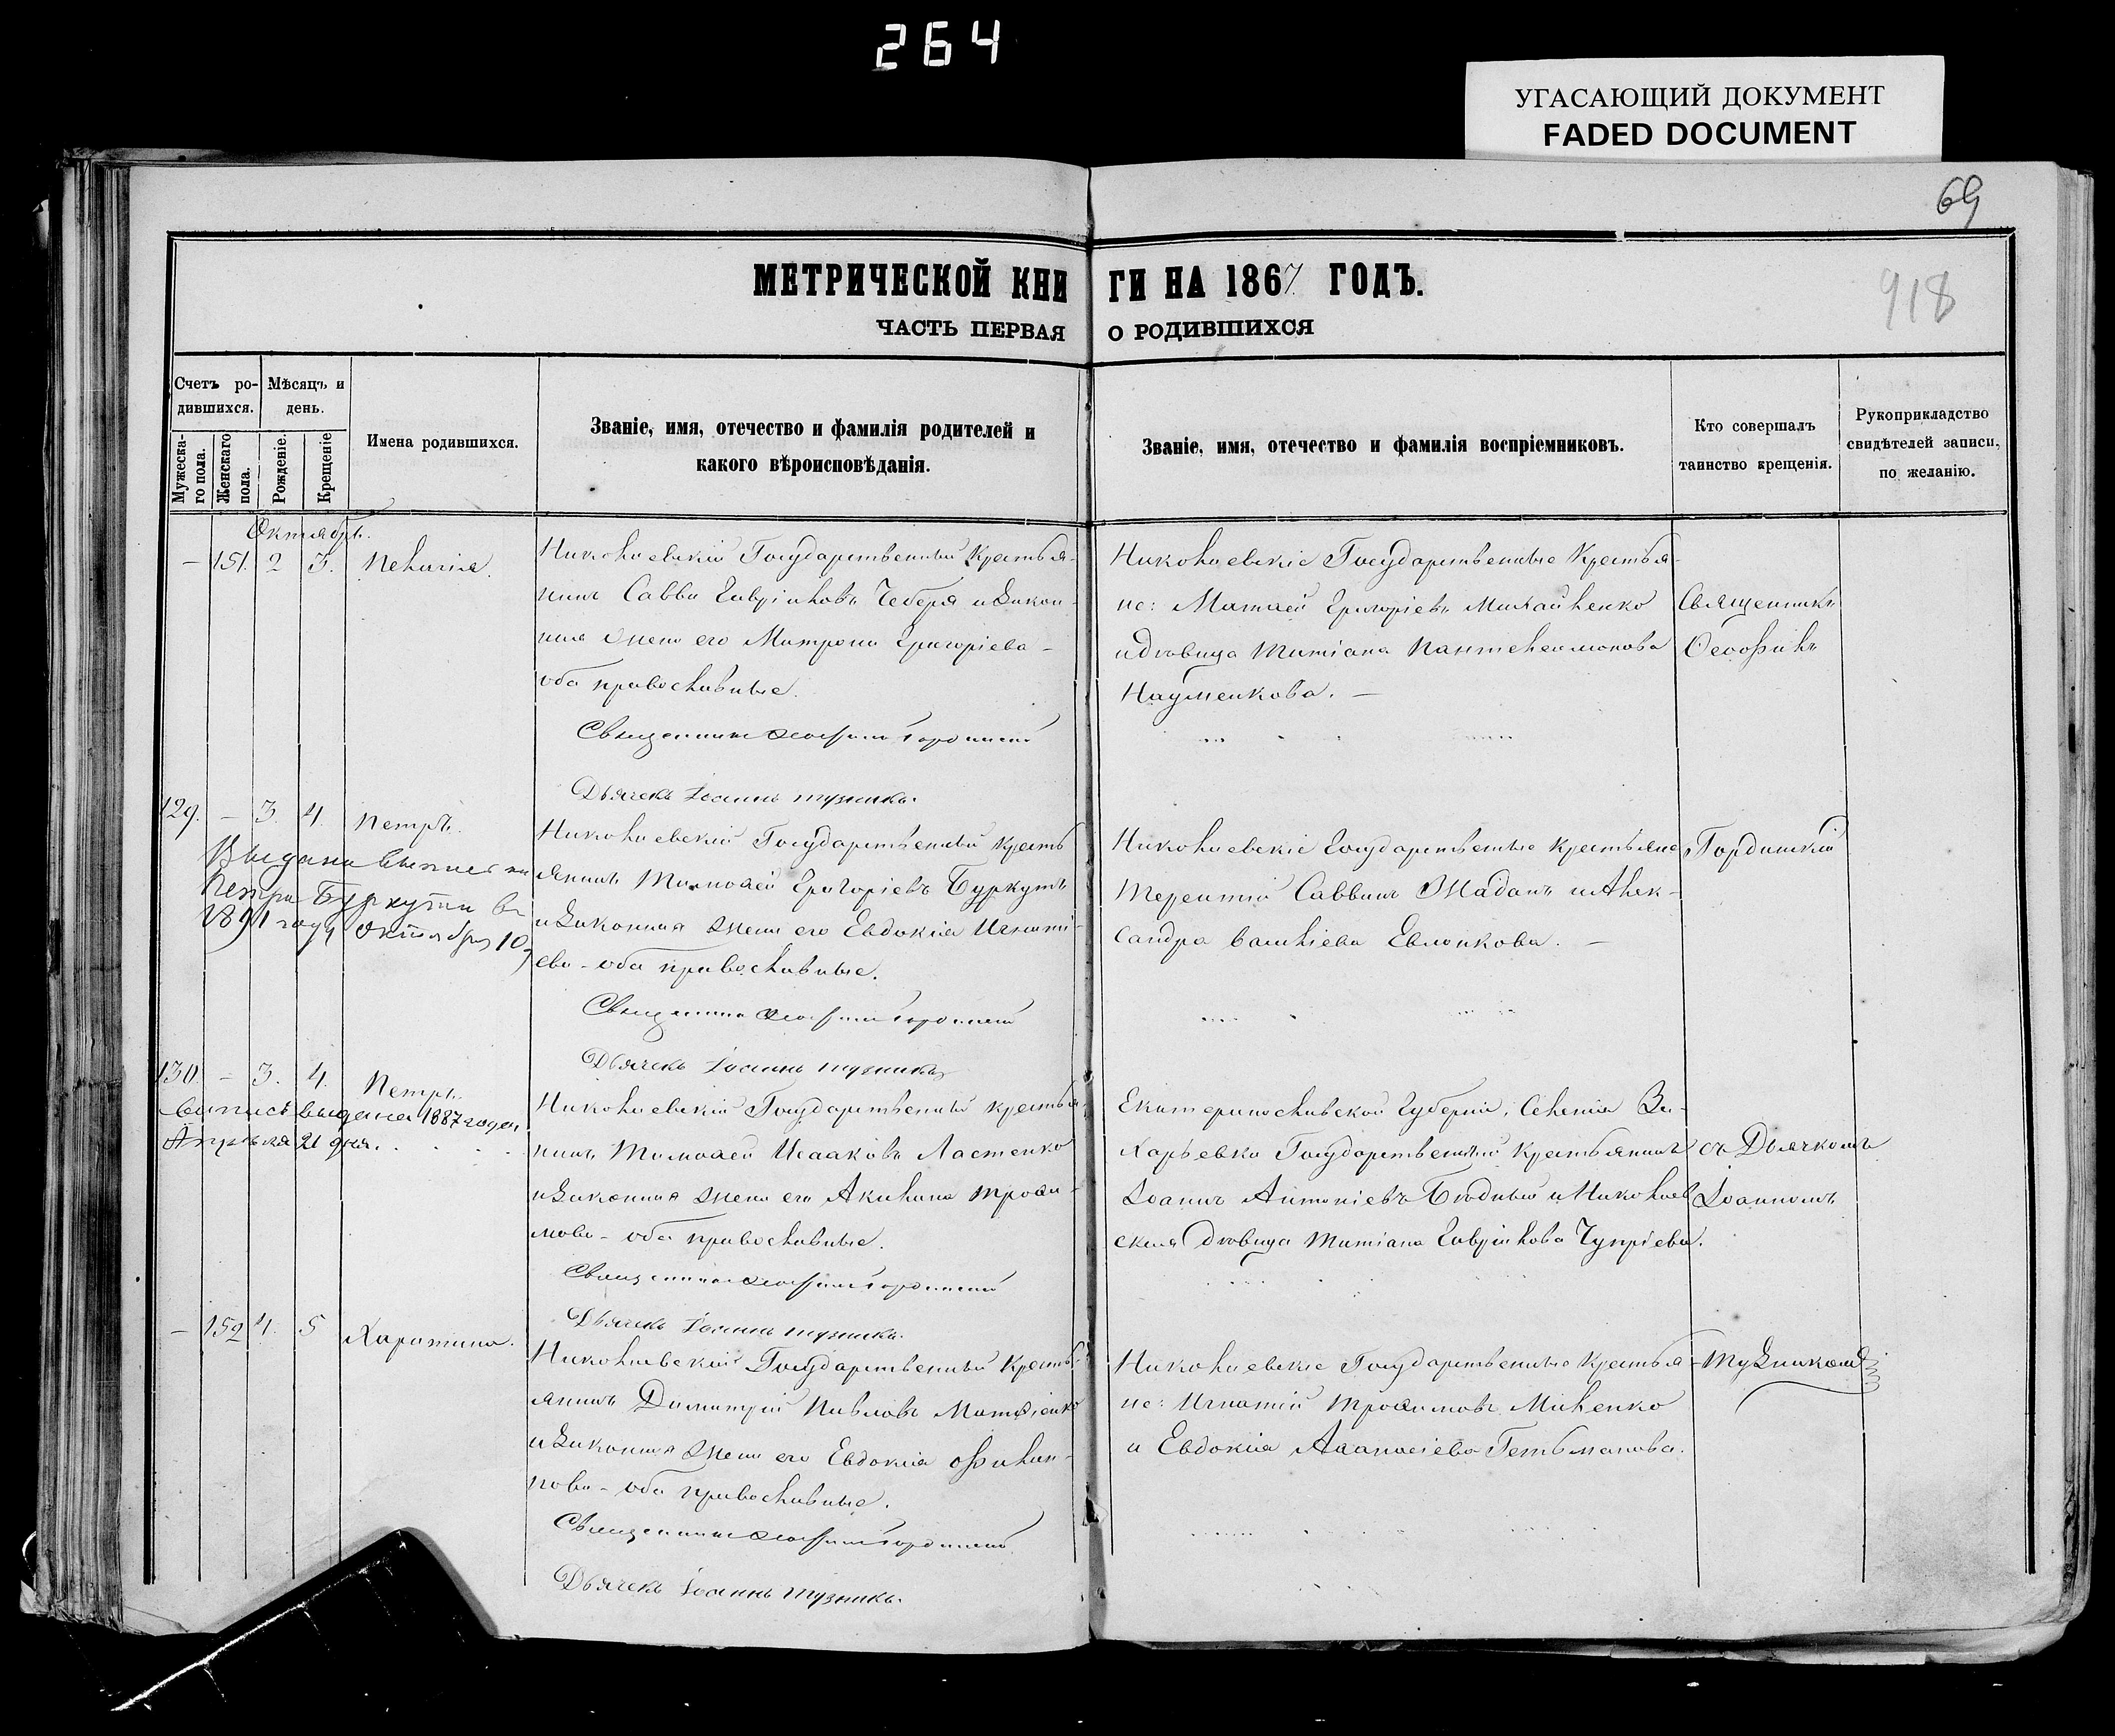 264
УГАСАЮЩИЙ ДОКУМЕНТ
FADED DOCUMENT
69
918
МЕТРИЧЕСКОЙ КНИГИ НА 1867 ГОДЪ.
ЧАСТЬ ПЕРВАЯ О РОДИВШИХСЯ
Счетъ ро-
дившихся.
Мужеска-
го пола.
Женскаго
пола.
Мѣсяцъ и
день.
Рожденіе.
Крещеніе
Имена родившихся.
Званіе, имя, отечество и фамилія родителей и
какого вѣроисповѣданія.
Званіе, имя, отечество и фамилія воспріемниковъ.
Кто совершалъ
таинство крещенія.
Рукоприкладство
свидѣтелей записи,
по желанію.
Октябрь.
– 151. 2 3. Пелагія.
Николаевскій Государственный Крестья-
нинъ Савва Гавріиловъ Чеберя и Закон-
ная жена его Матрона Григоріева –
оба православные.
Священникъ Ѳеофилъ Гординскій
Дьячекъ Іоаннъ Тузникъ.
Николаевскіе Государственные Крестья-
не: Матѳей Григоріевъ Михайленко
и вдовица Татіана Пантелеимонова
Науменкова. –
Священникъ
Ѳеофилъ
129. – 3. 4. Петръ.
Выдана выпись на
Петра Буркута въ
1891 году Октября 10,
Николаевскій Государственный Кресть
янинъ Тимоѳей Григоріевъ Буркутъ
и Законная жена его Евдокія Игнаті-
ева – оба православные.
Священникъ Ѳеофилъ Гординскій
Дьячекъ Іоаннъ Тузникъ
Николаевскіе Государственные Крестьяне,
Терентій Саввинъ Жаданъ и Алек-
сандра Евлонкова. –
Гординскій
130. – 3. 4. Петръ.
выпись выдана 1887 года
Апрѣля 21 дня.
Николаевскій Государственный крестья
нинъ Тимоѳей Исааковъ Ластенко
и Законная жена его Акилина Троѳи-
мова – оба православные.
Священникъ Ѳеофилъ Гординскій
Дьячекъ Іоаннъ Тузникъ.
Екатеринославской Губерніи, Селенія За-
харьевки Государственный Крестьянинъ
Іоаннъ Антоніевъ Бѣдный и Николаев
ская вдовица Татіана Гавріилова Чупріева.
съ Дьячкомъ
Іоанномъ
– 152 4. 5 Харитина.
Николаевскій Государственный Кресть-
янинъ Димитрій Павловъ Матѳіенко
и Законная жена его Евдокія Филип-
пова – оба православные.
Священникъ Ѳеофилъ Гординскій
Дьячекъ Іоаннъ Тузникъ.
Николаевскіе Государственные Крестья-
не: Игнатій Троѳимовъ Миленко
и Евдокія Аѳанасіева Гетьманова.
Тузникомъ